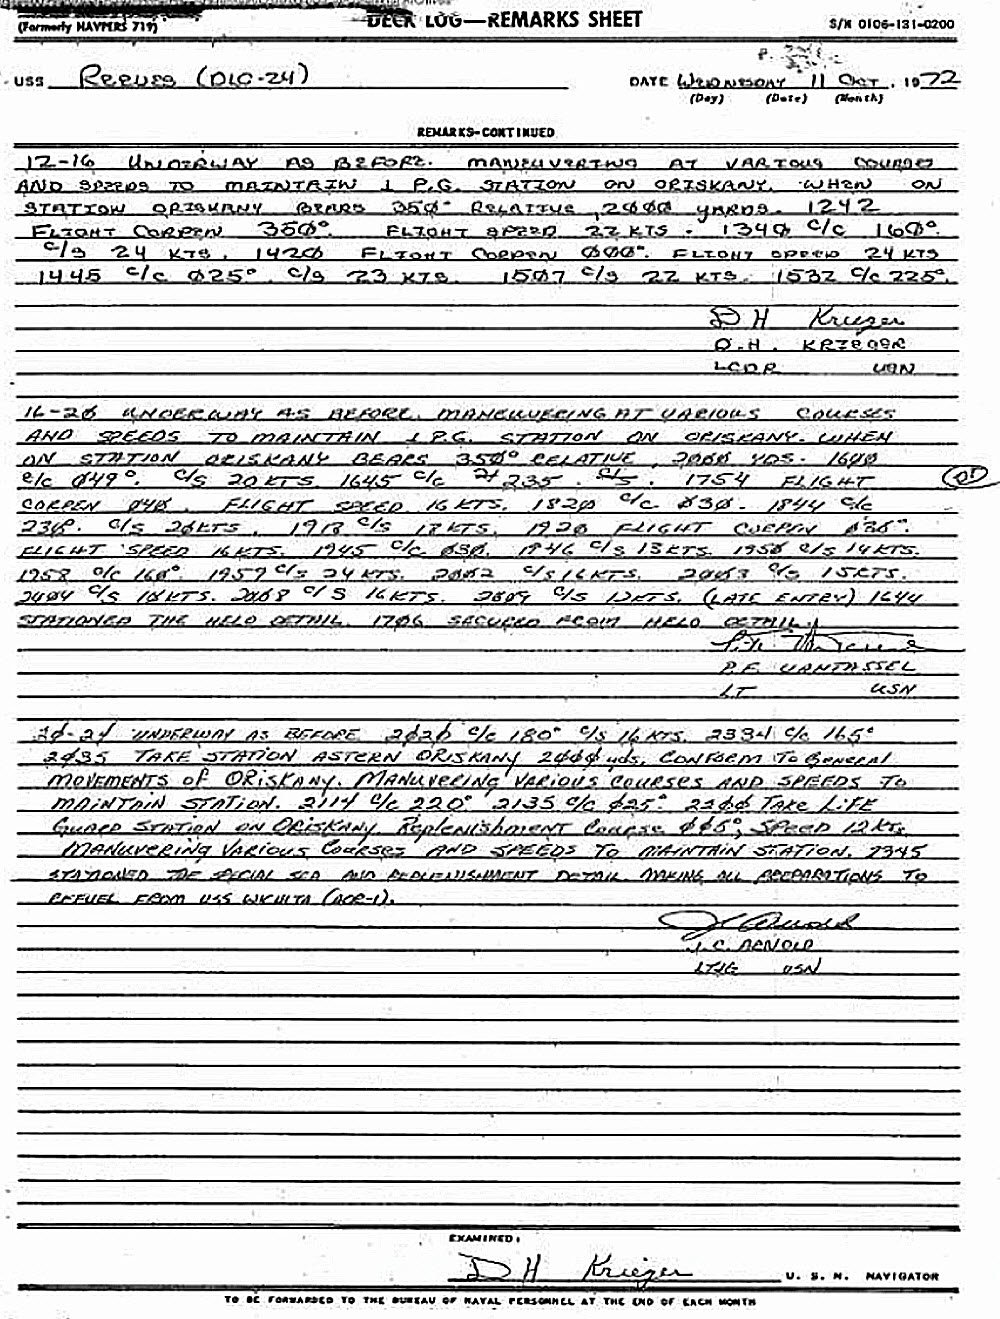 DECK LOG—REMARKS SHEET
(Formerly NAVPERS 719)
S/N 0106-131-0200
USS REEVES (DLG-24)
DATE WEDNESDAY 11 OCT, 1972
(Day) (Date) (Month)
REMARKS-CONTINUED
12-16 UNDERWAY AS BEFORE. MANEUVERING AT VARIOUS COURSES
AND SPEEDS TO MAINTAIN 1 P.G. STATION ON ORISKANY. WHEN ON
STATION ORISKANY BEARS 350° RELATIVE, 2000 YARDS. 1242
FLIGHT CORPEN 350°. FLIGHT SPEED 22 KTS. 1340 C/C 160°.
C/S 24 KTS. 1420 FLIGHT CORPEN 000°. FLIGHT SPEED 24 KTS
1445 C/C 025°. C/S 23 KTS. 1507 C/S 22 KTS. 1532 C/C 225°.
D H Krieger
D.H. KRIEGER
LCDR USN
16-20 UNDERWAY AS BEFORE. MANEUVERING AT VARIOUS COURSES
AND SPEEDS TO MAINTAIN 1 P.G. STATION ON ORISKANY. WHEN
ON STATION ORISKANY BEARS 350° RELATIVE, 2000 YDS. 1600
C/C 049°. C/S 20 KTS. 1645 C/C 235. 1754 FLIGHT
CORPEN 040. FLIGHT SPEED 16 KTS. 1820 C/C 030. 1844 C/C
230. C/S 20 KTS. 1918 C/S 18 KTS. 1920 FLIGHT CORPEN 030°.
FLIGHT SPEED 16 KTS. 1945 C/C 030. 1946 C/S 13 KTS. 1950 C/S 14 KTS.
1958 C/C 160°. 1959 C/S 24 KTS. 2002 C/S 16 KTS. 2003 C/S 15 KTS.
2004 C/S 18 KTS. 2008 C/S 16 KTS. 2009 C/S 12 KTS. (LATE ENTRY) 1644
STATIONED THE HELO DETAIL. 1706 SECURED FROM HELO DETAIL.
P.F. VANTASSEL
LT USN
20-24 UNDERWAY AS BEFORE 2020 C/C 180° C/S 16 KTS. 2334 C/C 165°
2035 TAKE STATION ASTERN ORISKANY 2000 yds, CONFORM To GENERAL
MOVEMENTS OF ORISKANY. MANUVERING VARIOUS COURSES AND SPEEDS TO
MAINTAIN STATION. 2114 C/C 220° 2135 C/C 025°. 2200 TAKE LIFE
GUARD STATION ON ORISKANY. Replenishment Course 005°, SPEED 12 KTS.
MANUVERING VARIOUS COURSES AND SPEEDS TO MAINTAIN STATION. 2345
STATIONED THE SPECIAL SEA AND REPLENISHMENT DETAIL MAKING ALL PREPARATIONS TO
REFUEL FROM USS WICHITA (AOR-1).
J C Arnold
J.C. ARNOLD
LTJG USN
EXAMINED:
D H Krieger U. S. N. NAVIGATOR
TO BE FORWARDED TO THE BUREAU OF NAVAL PERSONNEL AT THE END OF EACH MONTH